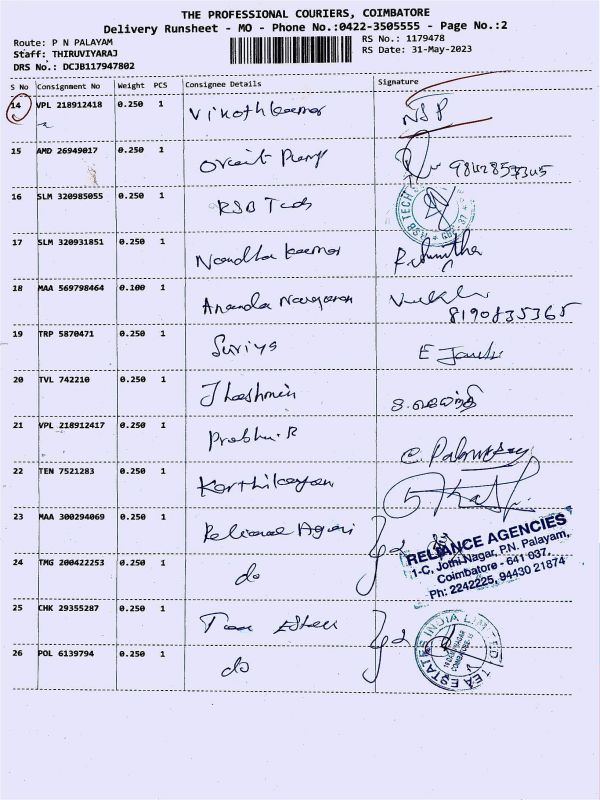 THE PROFESSIONAL COURIERS, COIMBATORE
Delivery Runsheet - MO - Phone No.:0422-3505555 - Page No.:2
Route: P N PALAYAM
RS No.: 1179478
Staff: THIRUVIYARAJ
RS Date: 31-May-2023
DRS No.: DCJB117947802
S No Consignment No Weight PCS Consignee Details Signature
14 VPL 218912418 0.250 1 Vinothkumar NSP
15 AMD 26949017 0.250 1
16 SLM 320985055 0.250 1 RSB
17 SLM 320931851 0.250 1 Nandha kumar
18 MAA 569798464 0.100 1 Ananda Narayanan
8190835365
19 TRP 5870471 0.250 1 Suriya E
20 TVL 742210 0.250 1
21 VPL 218912417 0.250 1 Prabhu.R
22 TEN 7521283 0.250 1 Karthikeyan
23 MAA 300294069 0.250 1 Reliance
24 TMG 200422253 0.250 1 do
RELIANCE AGENCIES
1-C, Jothi Nagar, P.N. Palayam,
Coimbatore - 641 037,
Ph: 2242225, 94430 21874
25 CHK 29355287 0.250 1 Tea
26 POL 6139794 0.250 1 do
TEA ESTATES INDIA LIMITED